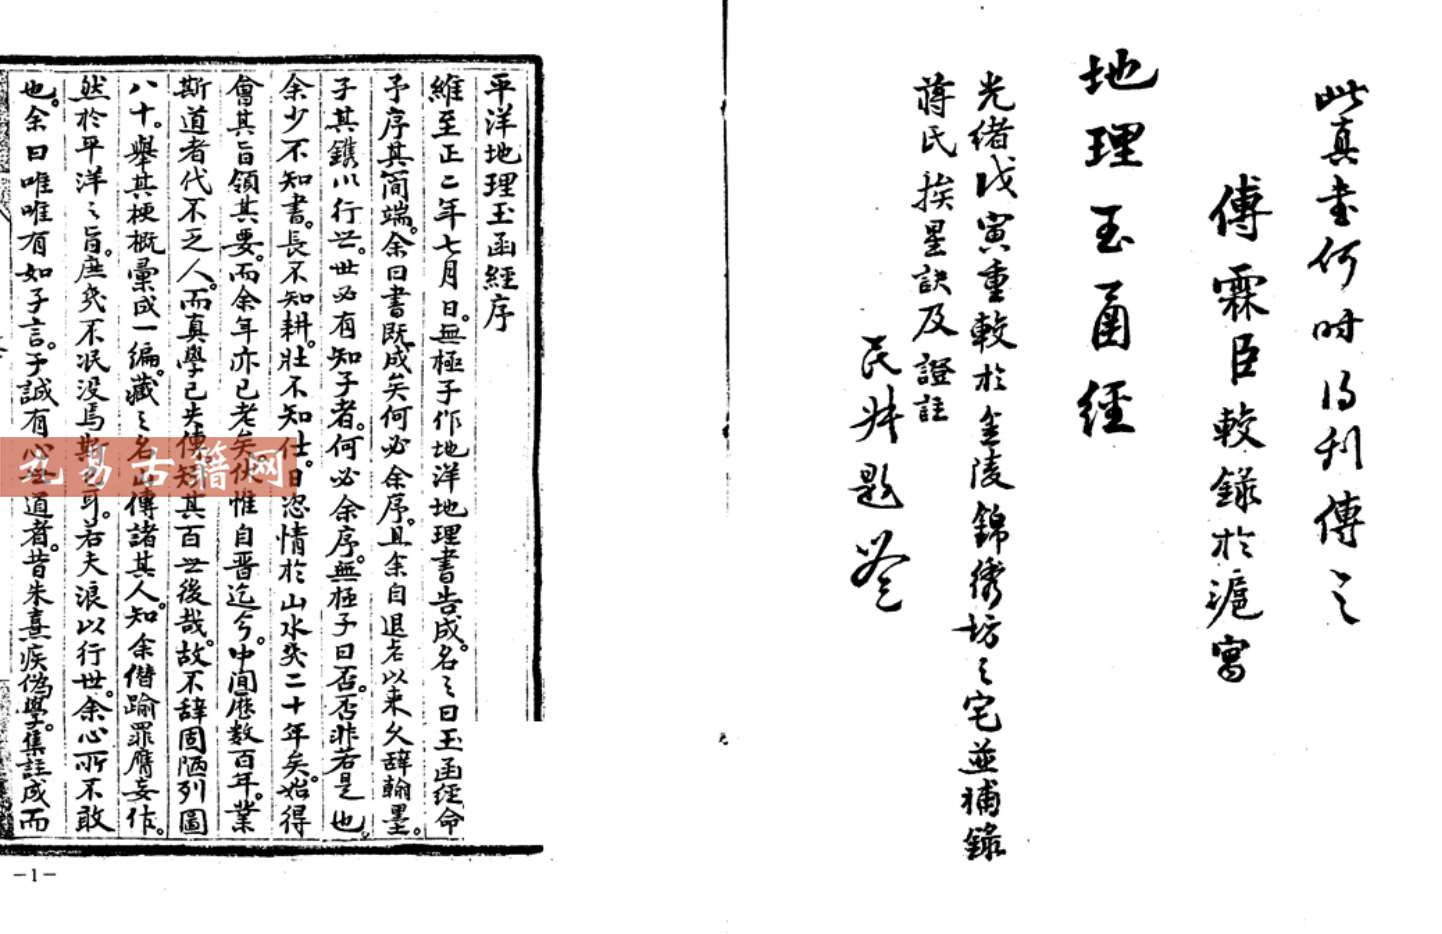 此真書何時得刊傳之
傅霖臣較錄於滬寓
地理玉函經
光緒戊寅重較於金陵錦綉坊之宅並補錄
蔣氏挨星訣及證註
民 題签
平洋地理玉函經序
維至正二年七月日。無極子作地洋地理書告成。名之曰玉函經命
予序其簡端。余曰書既成矣何必余序。且余自退老以來久辞翰墨。
子其鐫以行世。世必有知子者。何必余序。無極子曰否。否非若是也。
余少不知書。長不知耕。壯不知仕。日恣情於山水矣二十年矣。始得
會其旨領其要。而余年亦已老矣。伏惟自晋迄今。中间歷数百年。業
斯道者代不乏人。而真學已失傳。矧其百世後哉。故不辞固陋列圖
八十。舉其梗概彙成一編。藏之名山傳諸其人。知余僭踰罪膺妄作。
然於平洋之旨。庶幾不泯没焉斯已耳。若夫浪以行世。余心所不敢
也。余曰唯唯有如子言。予誠有心至道者。昔朱熹疾偽學。集註成而
九易古籍网
-1-